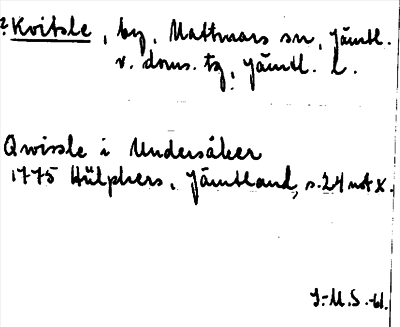 ? Kvitsle, by, Mattmars sn, Jämtl.
v. doms. tg, Jämtl. L.
Qwissle i Undersåker
1775 Hülphers, Jämtland, s. 24 not x.
J.-M.S.-bl.